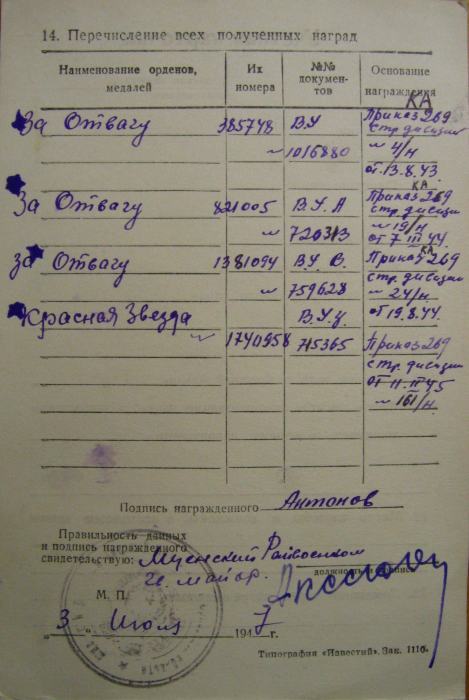 14. Перечисление всех полученных наград
Наименование орденов, медалей
Их номера
№№ документов
Основание награждения
За Отвагу 385748 В.У Приказ 269 КА
~ 1016880 стр. дивизии
~ 4/н
от 13.8.43.
За Отвагу 821005 В.У. А Приказ 269 КА
~ 720313 стр дивизии
~ 19/н
от 7 III 44.
За Отвагу 1381094 В.У. В. Приказ 269 КА
~ 759628 стр. дивизии
~ 24/н
от 19.8.44.
Красная Звезда В.У.
~ 1740958 715365 Приказ 269
стр. дивизии
от 11.II 45
~ 161/н.
Подпись награжденного Антонов
Правильность данных
и подпись награжденного
свидетельствую: Мценский Райвоенком
майор.
должность и подпись
М. П.
„ 3 " Июля 1947
Типография «Известий». Зак. 1116.